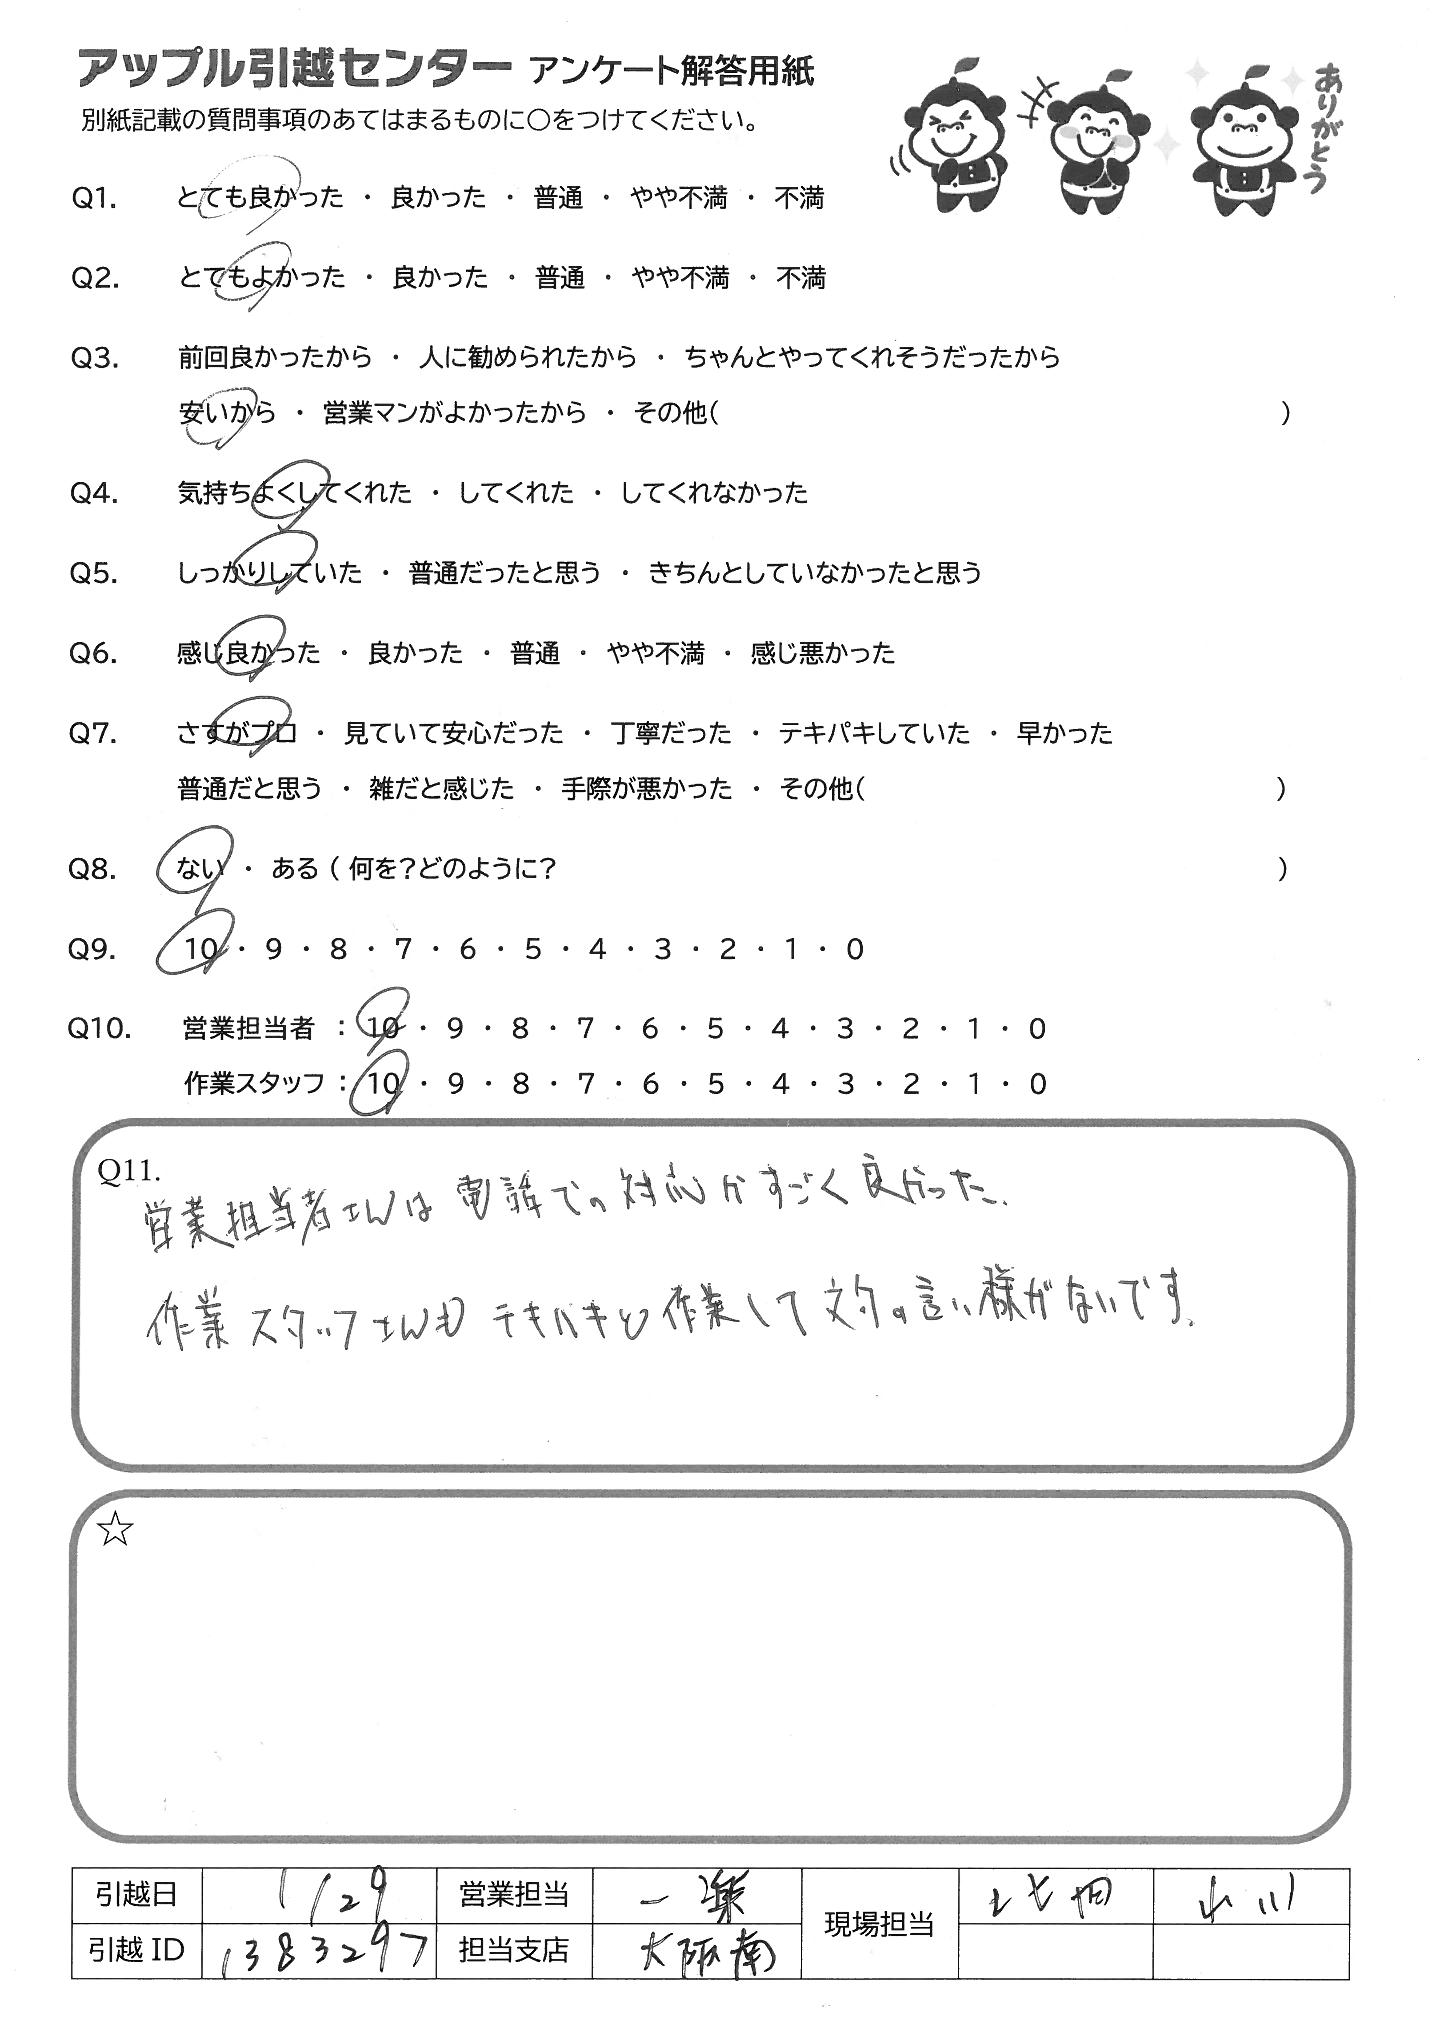 アップル引越センター アンケート解答用紙
ありがとう
別紙記載の質問事項のあてはまるものに○をつけてください。
Q1. とても良かった ・ 良かった ・ 普通 ・ やや不満 ・ 不満
Q2. とてもよかった ・ 良かった ・ 普通 ・ やや不満 ・ 不満
Q3. 前回良かったから ・ 人に勧められたから ・ ちゃんとやってくれそうだったから
安いから ・ 営業マンがよかったから ・ その他( )
Q4. 気持ちよくしてくれた ・ してくれた ・ してくれなかった
Q5. しっかりしていた ・ 普通だったと思う ・ きちんとしていなかったと思う
Q6. 感じ良かった ・ 良かった ・ 普通 ・ やや不満 ・ 感じ悪かった
Q7. さすがプロ ・ 見ていて安心だった ・ 丁寧だった ・ テキパキしていた ・ 早かった
普通だと思う ・ 雑だと感じた ・ 手際が悪かった ・ その他( )
Q8. ない ・ ある ( 何を?どのように? )
Q9. 10 ・ 9 ・ 8 ・ 7 ・ 6 ・ 5 ・ 4 ・ 3 ・ 2 ・ 1 ・ 0
Q10. 営業担当者 : 10 ・ 9 ・ 8 ・ 7 ・ 6 ・ 5 ・ 4 ・ 3 ・ 2 ・ 1 ・ 0
作業スタッフ : 10 ・ 9 ・ 8 ・ 7 ・ 6 ・ 5 ・ 4 ・ 3 ・ 2 ・ 1 ・ 0
Q11.
営業担当者さんは電話での対応がすごく良かった.
作業スタッフさんもテキパキと作業して文句の言い様がないです.
☆
引越日 1/29 営業担当 一楽 現場担当
引越 ID 1383297 担当支店 大阪南